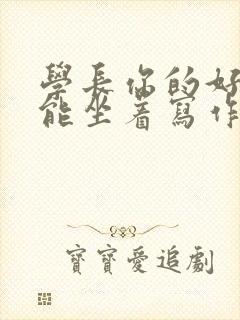 學長你的好
能坐著寫作
寶寶愛追劇